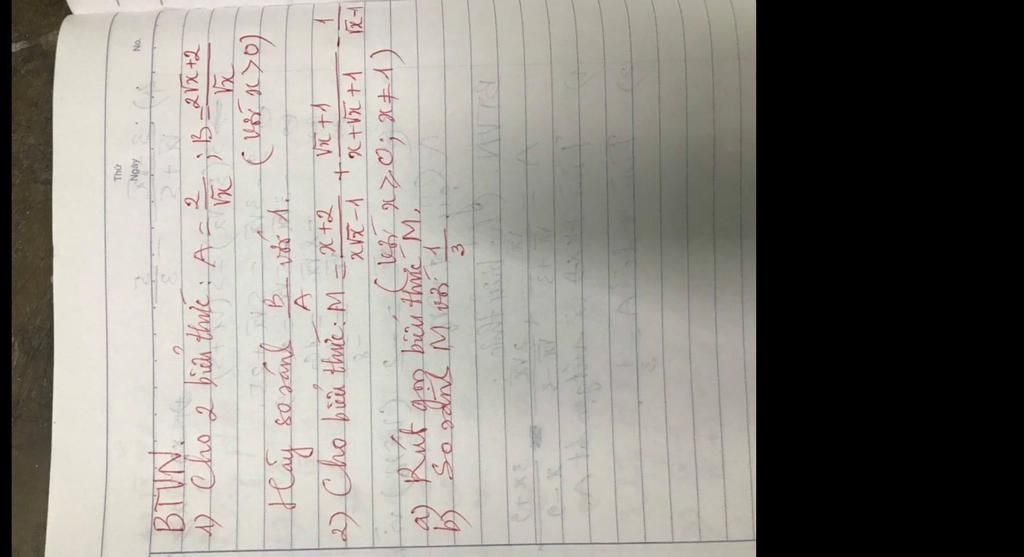 Thứ
Ngày
No.
BTVN:
1) Cho 2 biểu thức: A = 2/√x ; B = (2√x+2)/√x
Hãy so sánh B/A với 1. (với x > 0)
2) Cho biểu thức: M = (x+2)/(x√x-1) + (√x+1)/(x+√x+1) - 1/(√x-1)
(với x ≥ 0; x ≠ 1)
a) Rút gọn biểu thức M.
b) So sánh M với 1/3